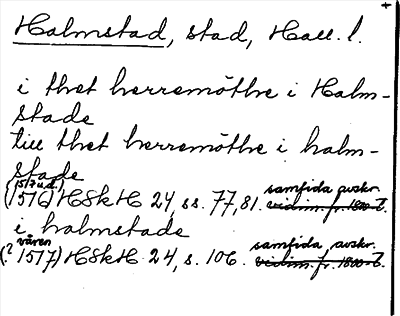 Halmstad, stad, Hall. l.
i thet herremöthe i Halm-
stade
till thet herremöthe i halm-
stade
(15/7 u.d.)
(1516) HSkH 24, ss. 77, 81. samtida avskr. vidim. fr. 1800-t.
i halmstade
våren
(? 1517) HSkH 24, s. 106. samtida avskr. vidim. fr. 1800-t.